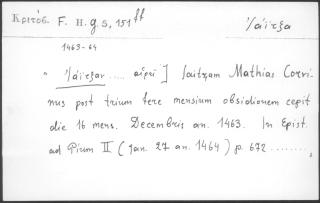 Κριτόβ. F. H. g 5, 151 ff Ἰάϊτζα
1463-64
" Ἰάϊτζαν ..... αἱρεῖ ] Iaitzam Mathias Corvi-
nus post trium fere mensium obsidionem cepit
die 16 mens. Decembris an. 1463. In Epist.
ad Pium II (Jan. 27 an. 1464) p. 672 ........,